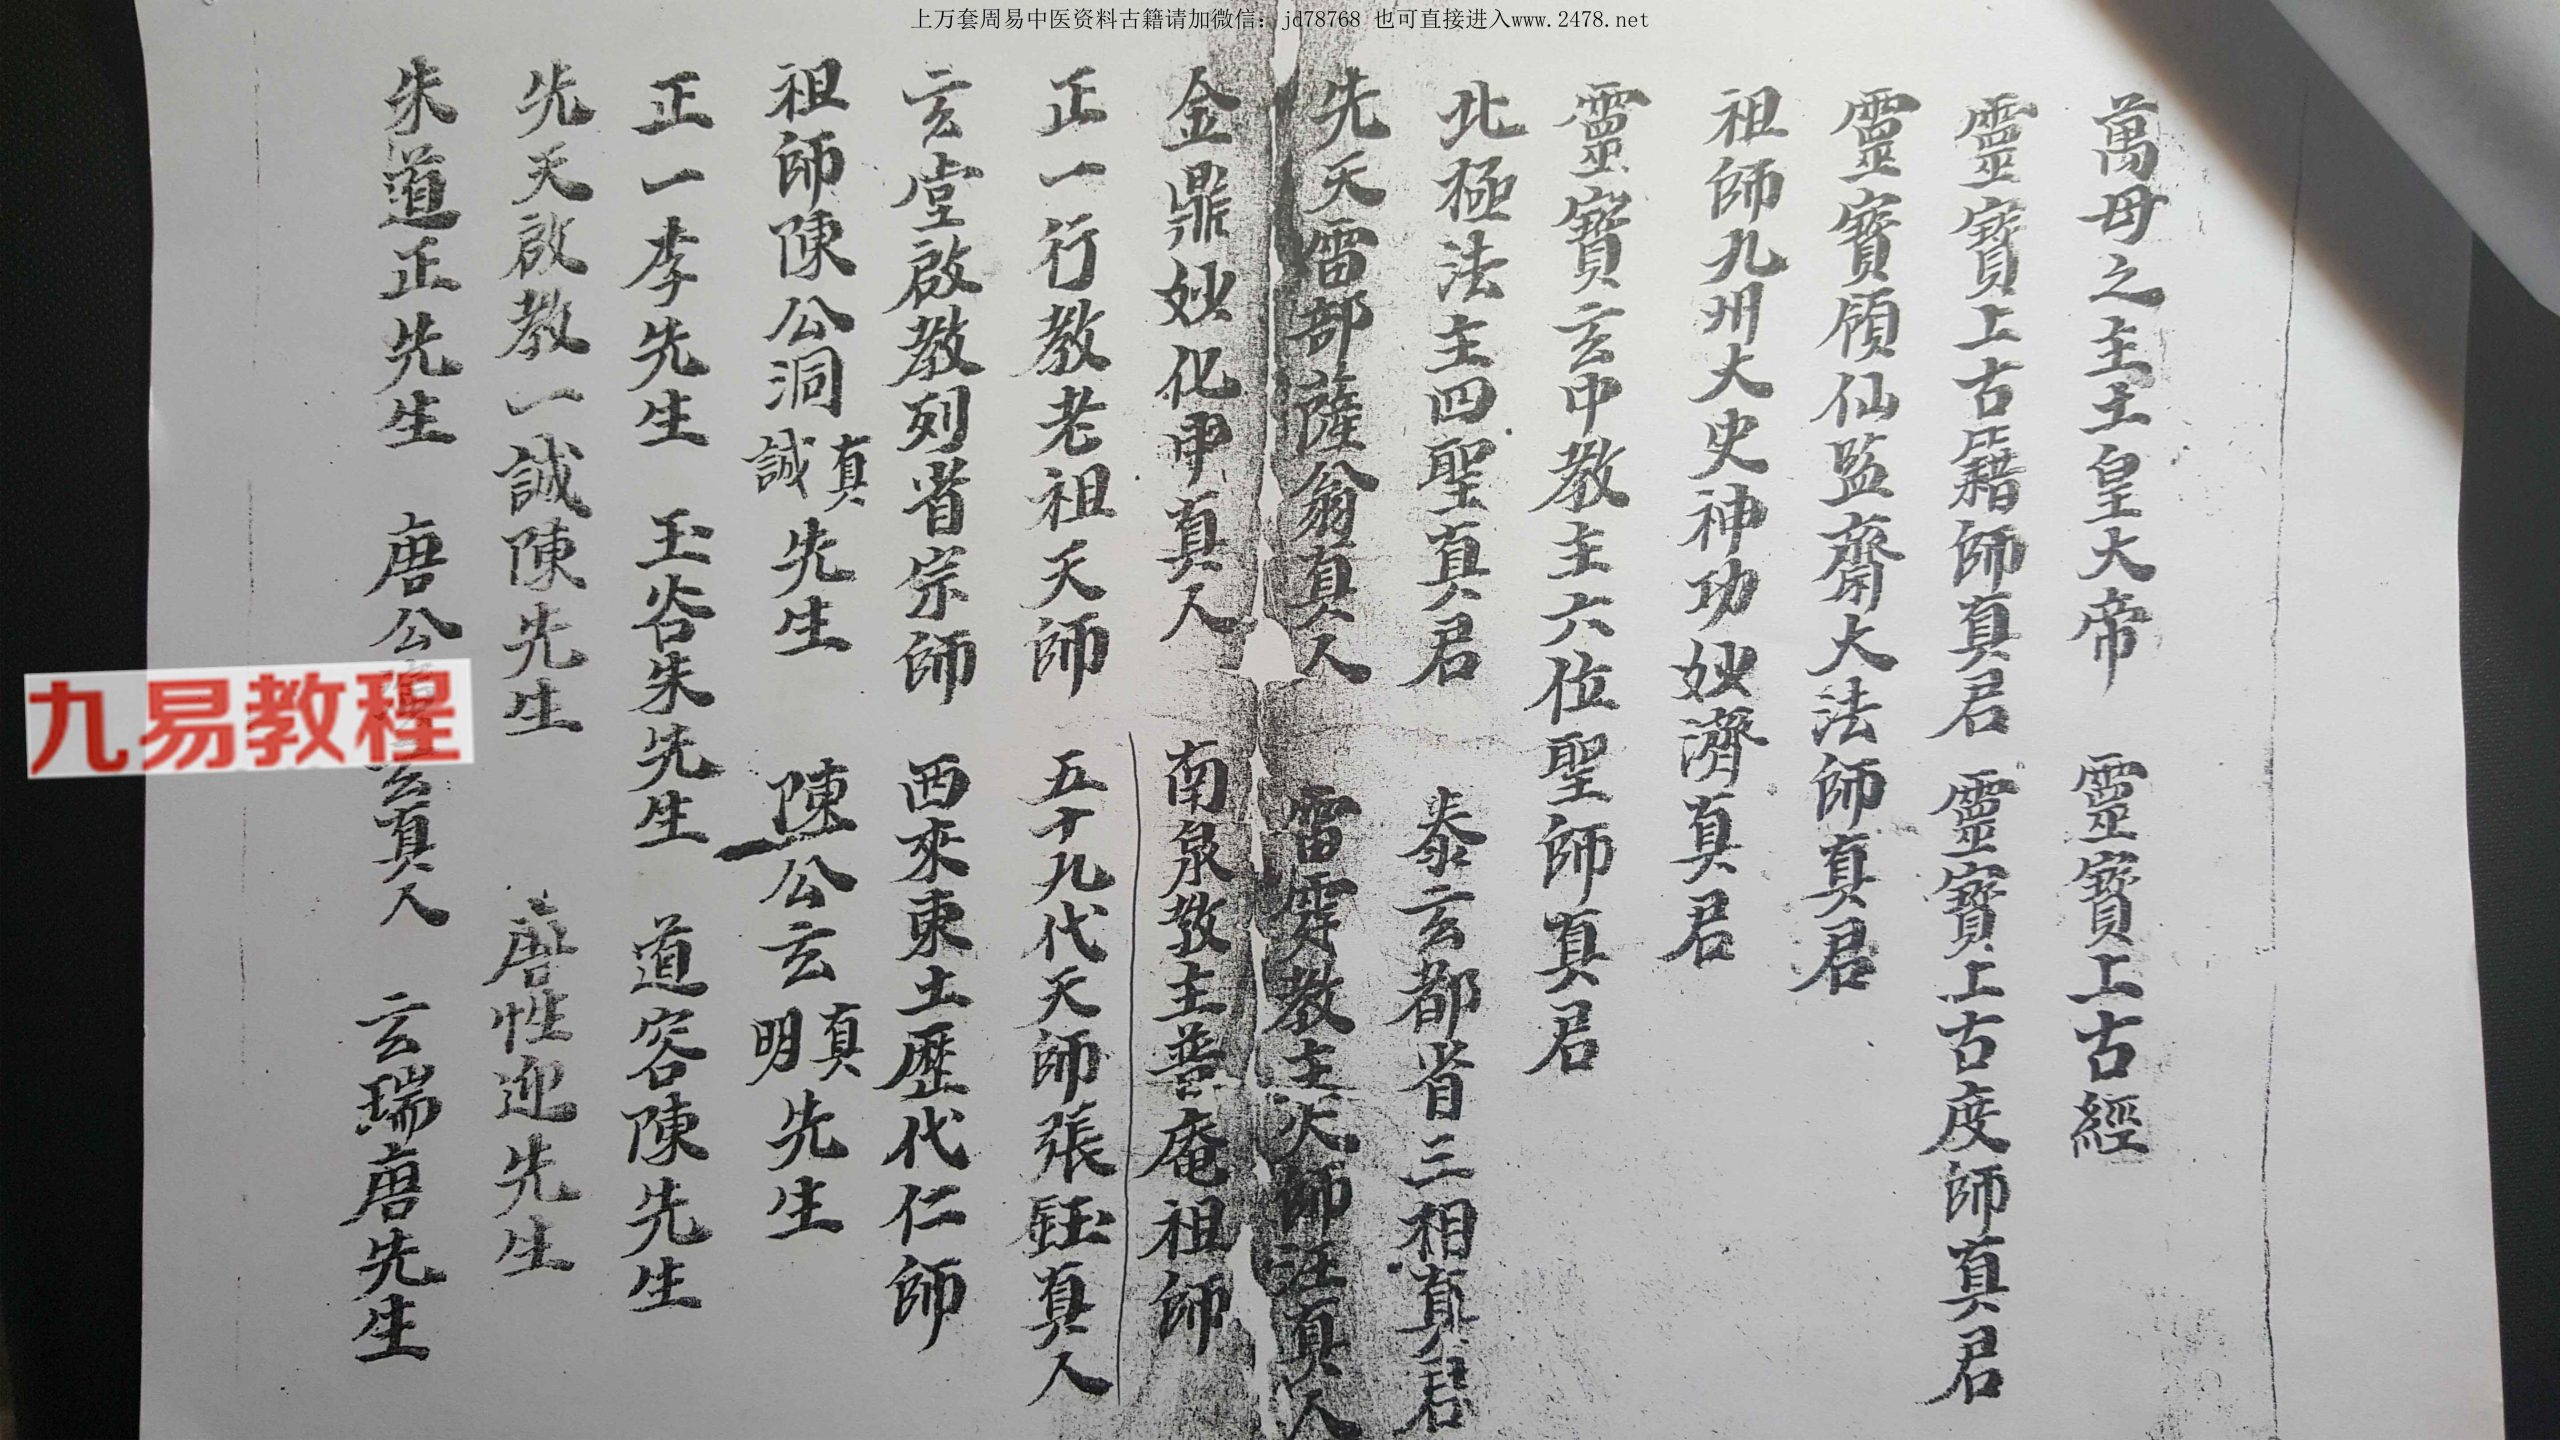 上万套周易中医资料古籍请加微信：jd78768 也可直接进入www.2478.net
萬母之主土皇大帝 靈寶上古經
靈寶上古籍師真君 靈寶上古度師真君
靈寶領仙監齋大法師真君
祖師九州大史神功妙濟真君
靈寶玄中教主六位聖師真君
北極法主四聖真君 泰玄都省三相真君
先天雷部薩翁真人 雷霆教主火師汪真人
金鼎妙化申真人 南泉教主普庵祖師
正一行教老祖天師 五十九代天師張鈺真人
玄堂啟教列省宗師 西來東土歷代仁師
祖師陳公洞真誠先生 陳公玄真明先生
正一李先生 玉谷朱先生 道容陳先生
先天啟教一誠陳先生 唐性迎先生
朱道正先生 唐公玄真人 玄瑞唐先生
九易教程